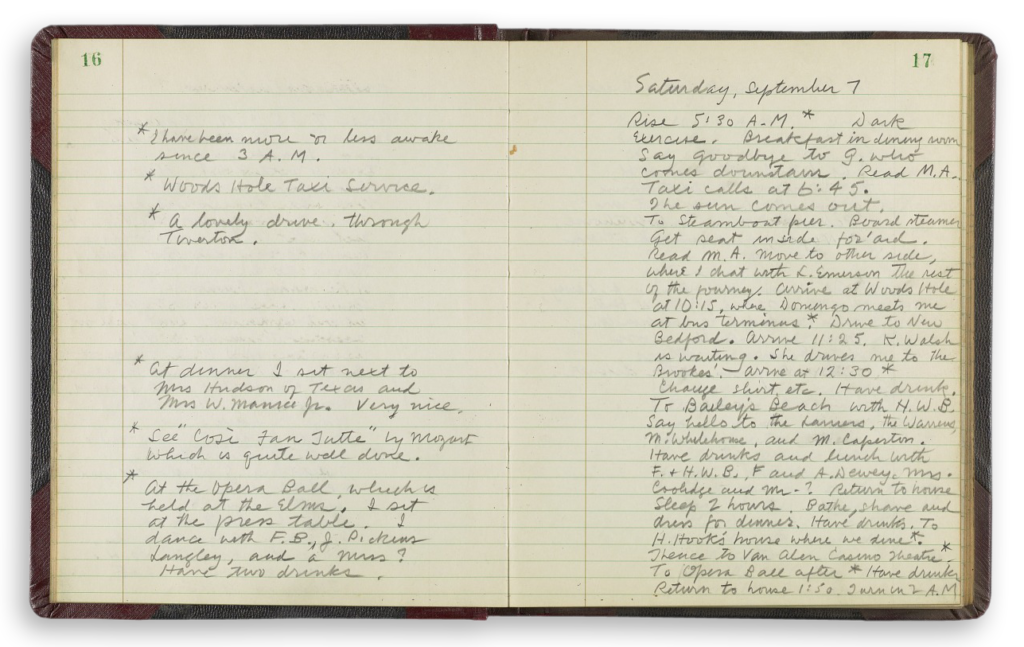 16
* I have been more or less awake
since 3 A.M.
* Woods Hole Taxi Service.
* A lovely drive. Through
Tiverton.
* At dinner I sit next to
Mrs Hudson of Texas and
Mrs W. Manice Jr. Very nice.
* See "Cosi Fan Tutte" by Mozart
which is quite well done.
* At the Opera Ball, which is
held at the Elms, I sit
at the press table. I
dance with F.B., J. Pickens
Langley, and a Miss?
Have two drinks.
17
Saturday, September 7
Rise 5:30 A.M.* Dark
Exercise. Breakfast in dining room
Say goodbye to G. who
comes downstairs. Read M.A.
Taxi calls at 6:45.
The sun comes out.
To Steamboat pier. Board steamer
Get seat inside for'ard.
Read M.A. Move to other side,
where I chat with L. Emerson the rest
of the journey. Arrive at Woods Hole
at 10:15, where Domingo meets me
at bus terminus.* Drive to New
Bedford. Arrive 11:25. K. Walsh
is waiting. She drives me to the
Brookes'. – arrive at 12:30 *
Change shirt, etc. Have drink.
To Bailey's Beach with H.W.B.
Say hello to the Laniers, the Warrens,
M. Whitehouse, and M. Caperton.
Have drinks and lunch with
F. + H.W.B., F and A. Dewey, Mrs.
Coolidge and Mr - ? Return to house
Sleep 2 hours. Bathe, shave and
dress for dinner. Have drinks. To
H. Hook's house where we dine*.
Thence to Van Alen Casino Theatre.*
To Opera Ball after * Have drinks
Return to house 1:50. Turn in 2 A.M